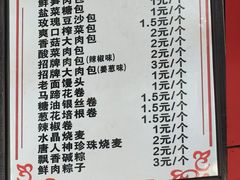 鲜笋肉包 1元/个
盐菜包 1元/个
玫瑰糖包 1元/个
爽口豆沙包 1.5元/个
香菇菜包 2元/个
酸菜大肉包 2元/个
招牌大肉包(辣椒味) 2元/个
招牌肉包(姜葱味) 2元/个
老面馒头 1元/个
马蹄花卷 1.5元/个
糖油银丝卷 1.5元/个
葱花培根卷 1.5元/个
辣椒卷
水晶烧麦 2元/个
唐人神珍珠烧麦 2元/个
飘香碱粽 2元/个
鲜肉粽子 3元/个